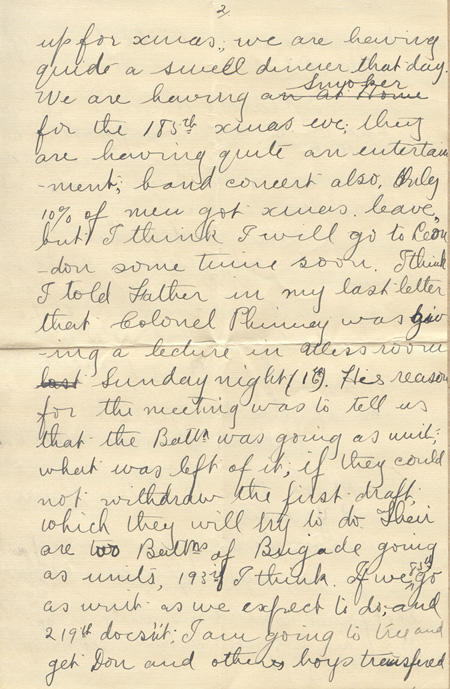 2.
up for xmas, we are having
quite a swell dinner that day.
We are having an at Home Smoker
for the 185th xmas eve; they
are having quite an entertain
-ment; band concert also. Only
10% of men got xmas. leave,
but I think I will go to Lon
-don some time soon. I think
I told Father in my last letter
that Colonel Phinney was giv
-ing a lecture in Mess room
last Sunday night (1th). His reason
for the meeting was to tell us
that the Battn was going as unit;
what was left of it, if they could
not withdraw the first draft,
which they will try to do. Their
are two Battns of Brigade going
as units, 193rd I think. If we 85th go
as unit as we expect to do, and
219th doesn't; I am going to try and
get Don and others boys transfered